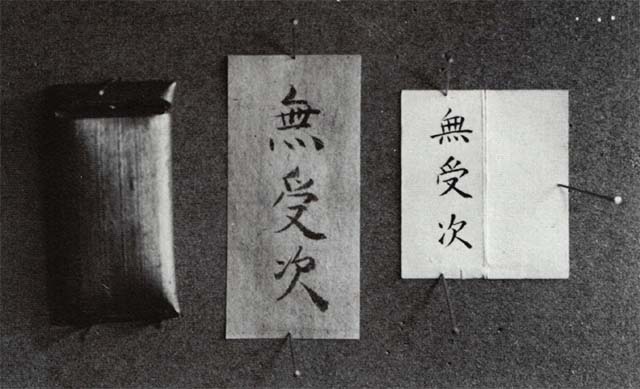 無受次
無受次